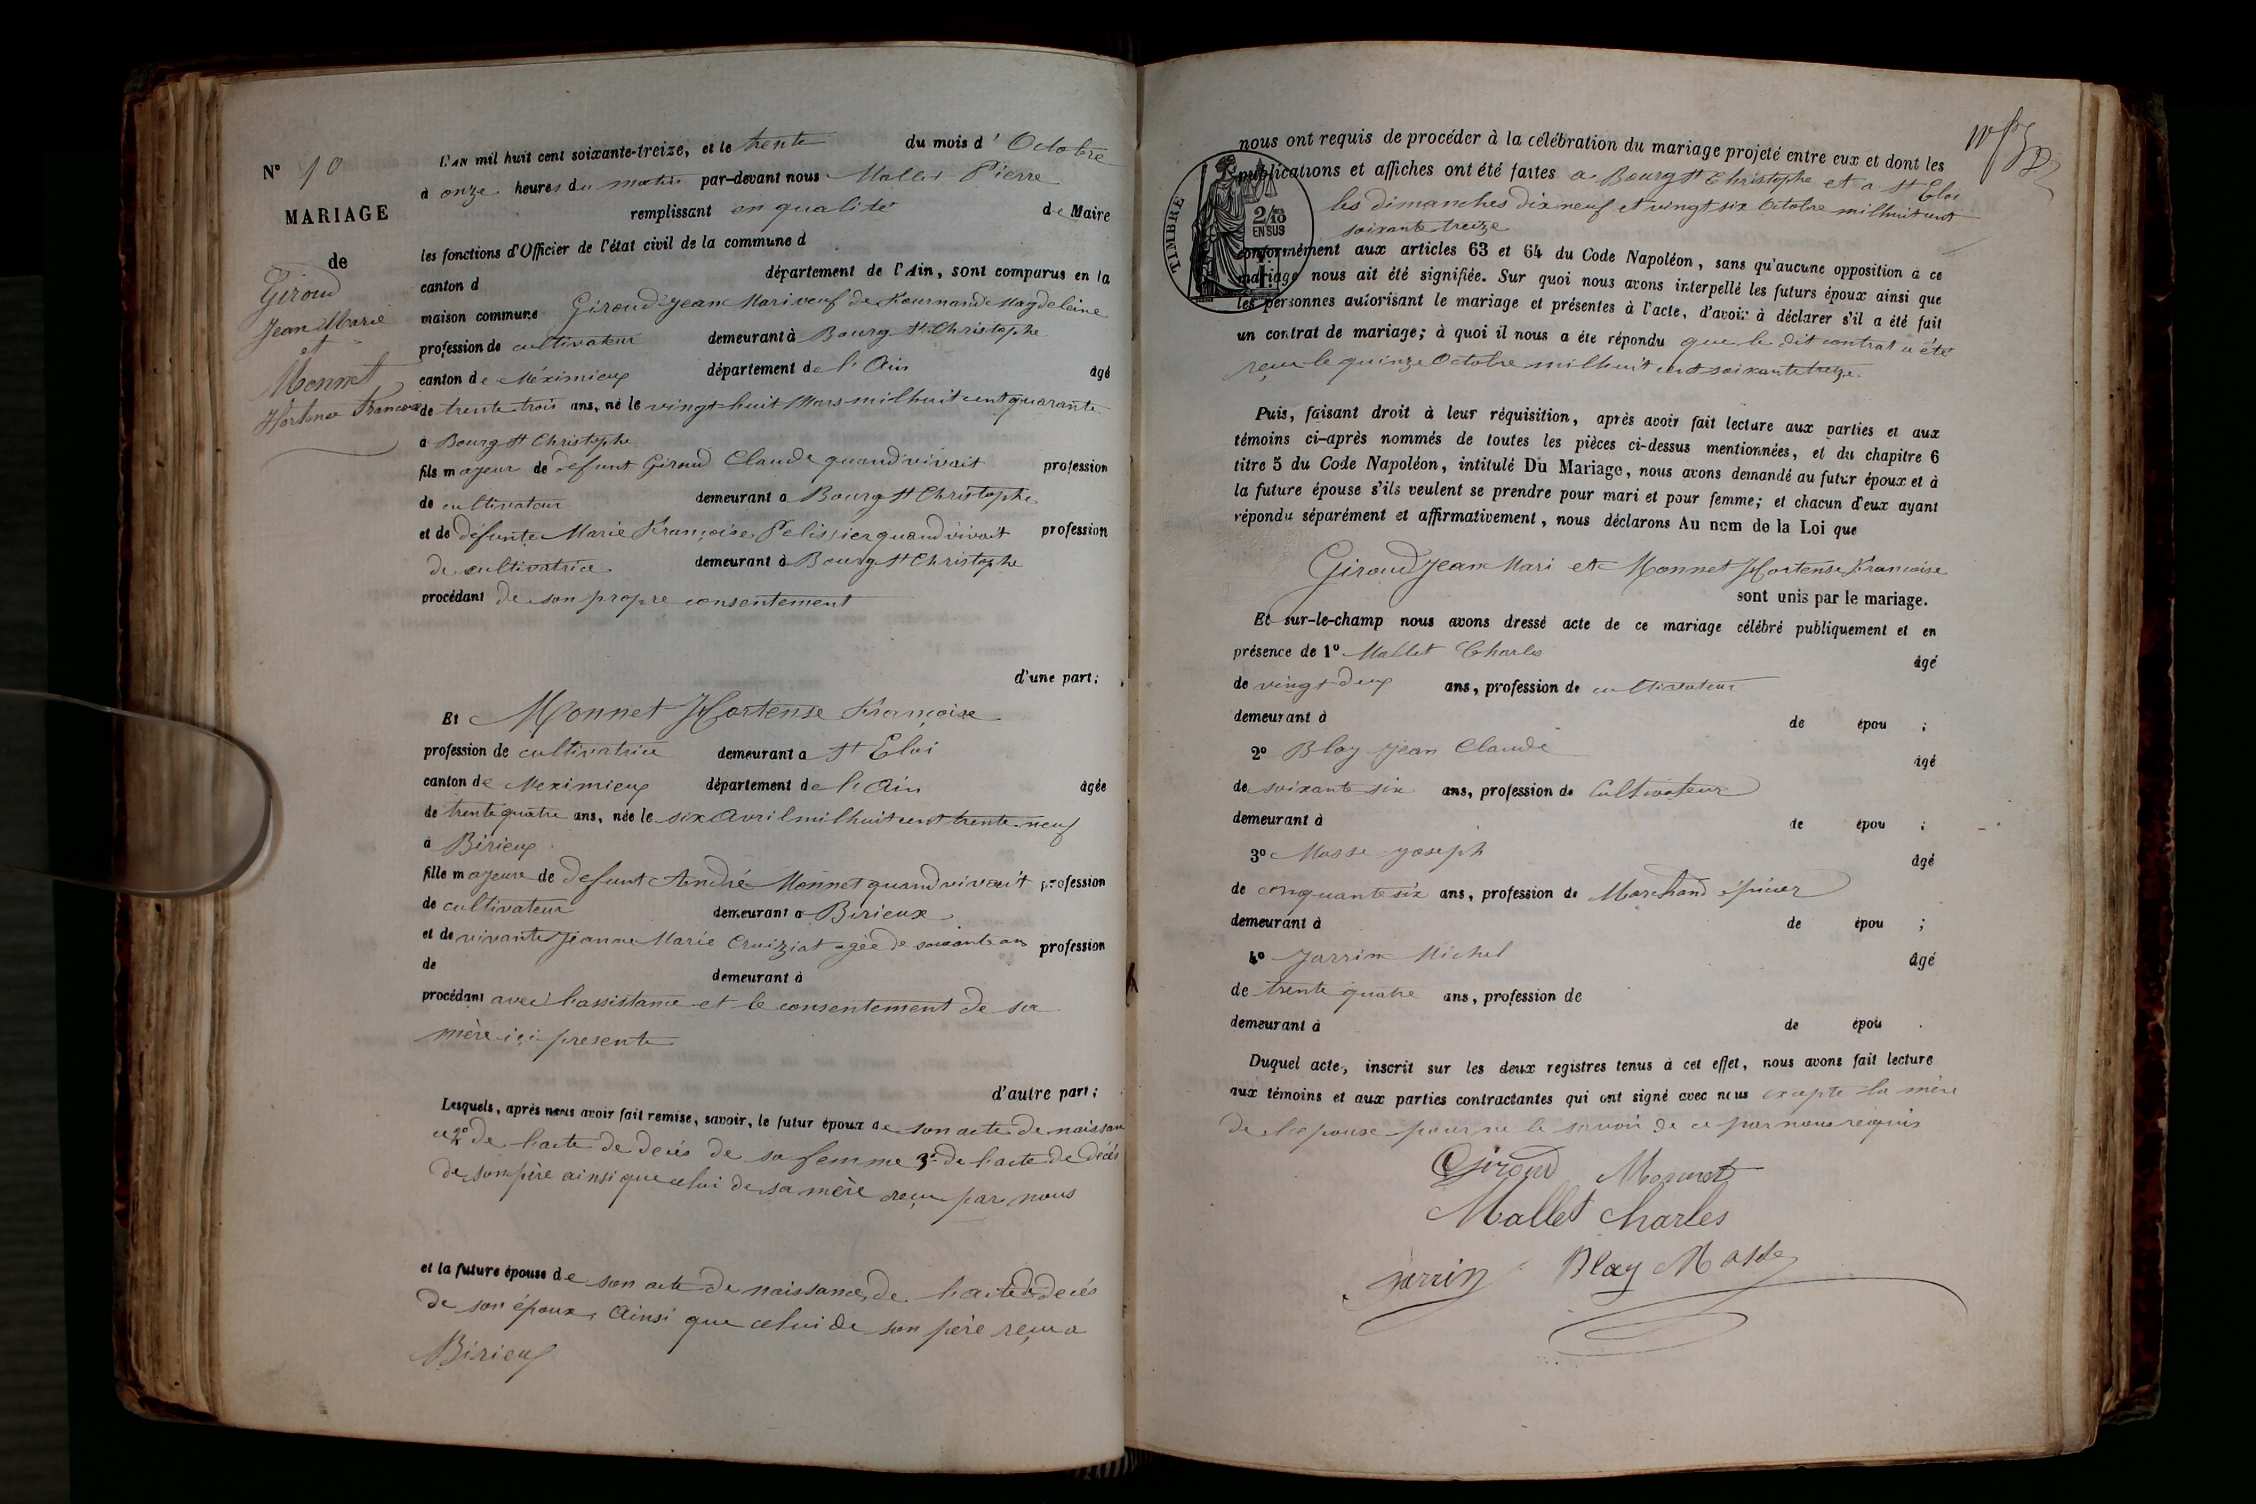 N° 10
MARIAGE
de
Giroud
Jean Marie
et
Monnet
Hortense Francoise
L'AN mil huit cent soixante-treize, et le trente du mois d' Octobre
à onze heures du matin par-devant nous Mallet Pierre
remplissant en qualité de Maire
les fonctions d'Officier de l'état civil de la commune d
canton d département de l'Ain, sont comparus en la
maison commune Giroud Jean Mari veuf de Fournand Magdeleine
profession de cultivateur demeurant à Bourg St Christophe
canton de Méximieux département de l'Ain âgé
de trente trois ans, né le vingt huit Mars mil huit cent quarante
à Bourg St Christophe
fils majeur de defunt Giroud Claude quand vivait profession
de cultivateur demeurant à Bourg St Christophe
et de défunte Marie Françoise Pelissier quand vivait profession
de cultivatrice demeurant à Bourg St Christophe
procédant de son propre consentement
d'une part;
Et Monnet Hortense Françoise
profession de cultivatrice demeurant à St Eloi
canton de Meximieux département de l'Ain âgée
de trente quatre ans, née le six Avril mil huit cent trente-neuf
à Birieux
fille majeure de defunt André Monnet quand vivait profession
de cultivateur demeurant à Birieux
et de vivante Jeanne Marie Cruiziat agée de soixante ans profession
de demeurant à
procédant avec l'assistance et le consentement de sa
mère ici presente
d'autre part;
Lesquels, après nous avoir fait remise, savoir, le futur époux de son acte de naissan
ce 2° de l'acte de decés de sa femme 3° de l'acte de décés
de son père ainsi que celui de sa mère reçu par nous
et la future épouse de son acte de naissance, de l'acte de decés
de son époux, Ainsi que celui de son père reçu a
Birieux
nous ont requis de procéder à la célébration du mariage projeté entre eux et dont les
publications et affiches ont été faites a Bourg St Christophe et a St Eloi
TIMBRE
2/10
EN SUS
les dimanches dix neuf et vingt six Octobre mil huit cent
soixante treize
conformément aux articles 63 et 64 du Code Napoléon, sans qu'aucune opposition à ce
mariage nous ait été signifiée. Sur quoi nous avons interpellé les futurs époux ainsi que
les personnes autorisant le mariage et présentes à l'acte, d'avoir à déclarer s'il a été fait
un contrat de mariage; à quoi il nous a éte répondu que le dit contrat a été
reçu le quinze Octobre mil huit cent soixante treize.
Puis, faisant droit à leur réquisition, après avoir fait lecture aux parties et aux
témoins ci-après nommés de toutes les pièces ci-dessus mentionnées, et du chapitre 6
titre 5 du Code Napoléon, intitulé Du Mariage, nous avons demandé au futur époux et à
la future épouse s'ils veulent se prendre pour mari et pour femme; et chacun d'eux ayant
répondu séparément et affirmativement, nous déclarons Au nom de la Loi que
Giroud Jean Mari et Monnet Hortense Francoise
sont unis par le mariage.
Et sur-le-champ nous avons dressé acte de ce mariage célébré publiquement et en
présence de 1° Mallet Charles âgé
de vingt deux ans, profession de cultivateur
demeurant à de épou ;
2° Blay Jean Claude âgé
de soixante six ans, profession de Cultivateur
demeurant à de épou ;
3° Masse Joseph âgé
de cinquante six ans, profession de Marchand épicier
demeurant à de épou ;
4° Jarrin Michel âgé
de trente quatre ans, profession de
demeurant à de épou .
Duquel acte, inscrit sur les deux registres tenus à cet effet, nous avons fait lecture
aux témoins et aux parties contractantes qui ont signé avec nous excepte la mère
de l'epouse pour ne le savoir de ce par nous requis
Giroud Monnet
Mallet Charles
Jarrin Blay Masse